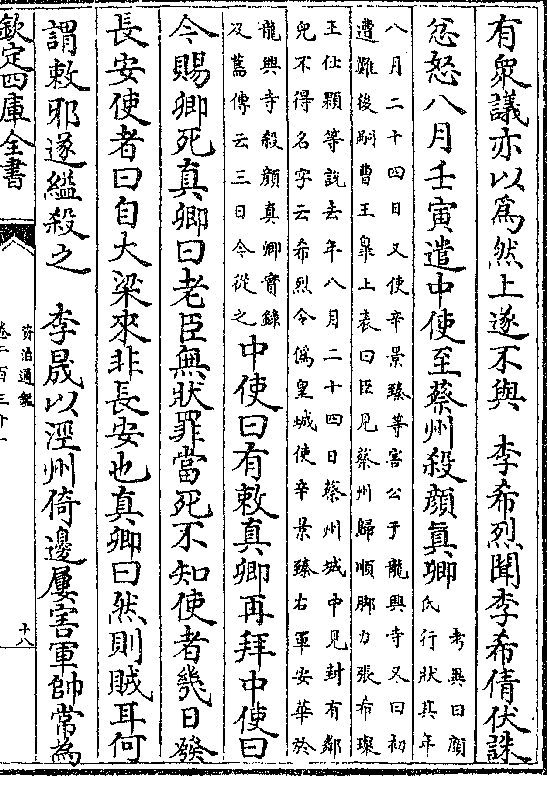 有衆議亦以為然上遂不與　李希烈聞李希倩伏誅
忿怒八月壬寅遣中使至蔡州殺顔真卿
考異曰顔
氏行狀其年
八月二十四日又使辛景臻等害公于龍興寺又曰初
遭難後嗣曹王臯上表曰臣見蔡州歸順脚力張希璨
王仕顆等說去年八月二十四日蔡州城中見封有鄰
兒不得名字云希烈令僞皇城使辛景臻右軍安華於
龍興寺殺顔真卿實録
及舊傳云三日令從之
中使曰有敕真卿再拜中使曰
今賜卿死真卿曰老臣無狀罪當死不知使者幾日發
長安使者曰自大梁來非長安也真卿曰然則賊耳何
謂敕邪遂縊殺之　李晟以涇州倚邊屢害軍帥常為
欽定四庫全書
資治通鑑
卷二百三十一
十八